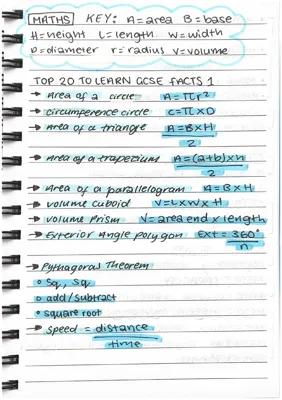 MATHS KEY: A=area B=base
H=height L=length W=width
D=diameter r=radius V=volume
TOP 20 TO LEARN GCSE FACTS 1
→ Area of a circle A=πr²
→ circumference circle C=π×D
→ Area of a triangle A=B×H
2
→ Area of a trapezium A=(a+b)×h
2
→ Area of a parallelogram A=B×H
→ volume cuboid V=L×W×H
→ volume Prism V=area end × length
→ Exterior Angle polygon Ext = 360°
n
→ Pythagoras Theorem
• Sq, Sq
• add/subtract
• square root
→ speed = distance
time